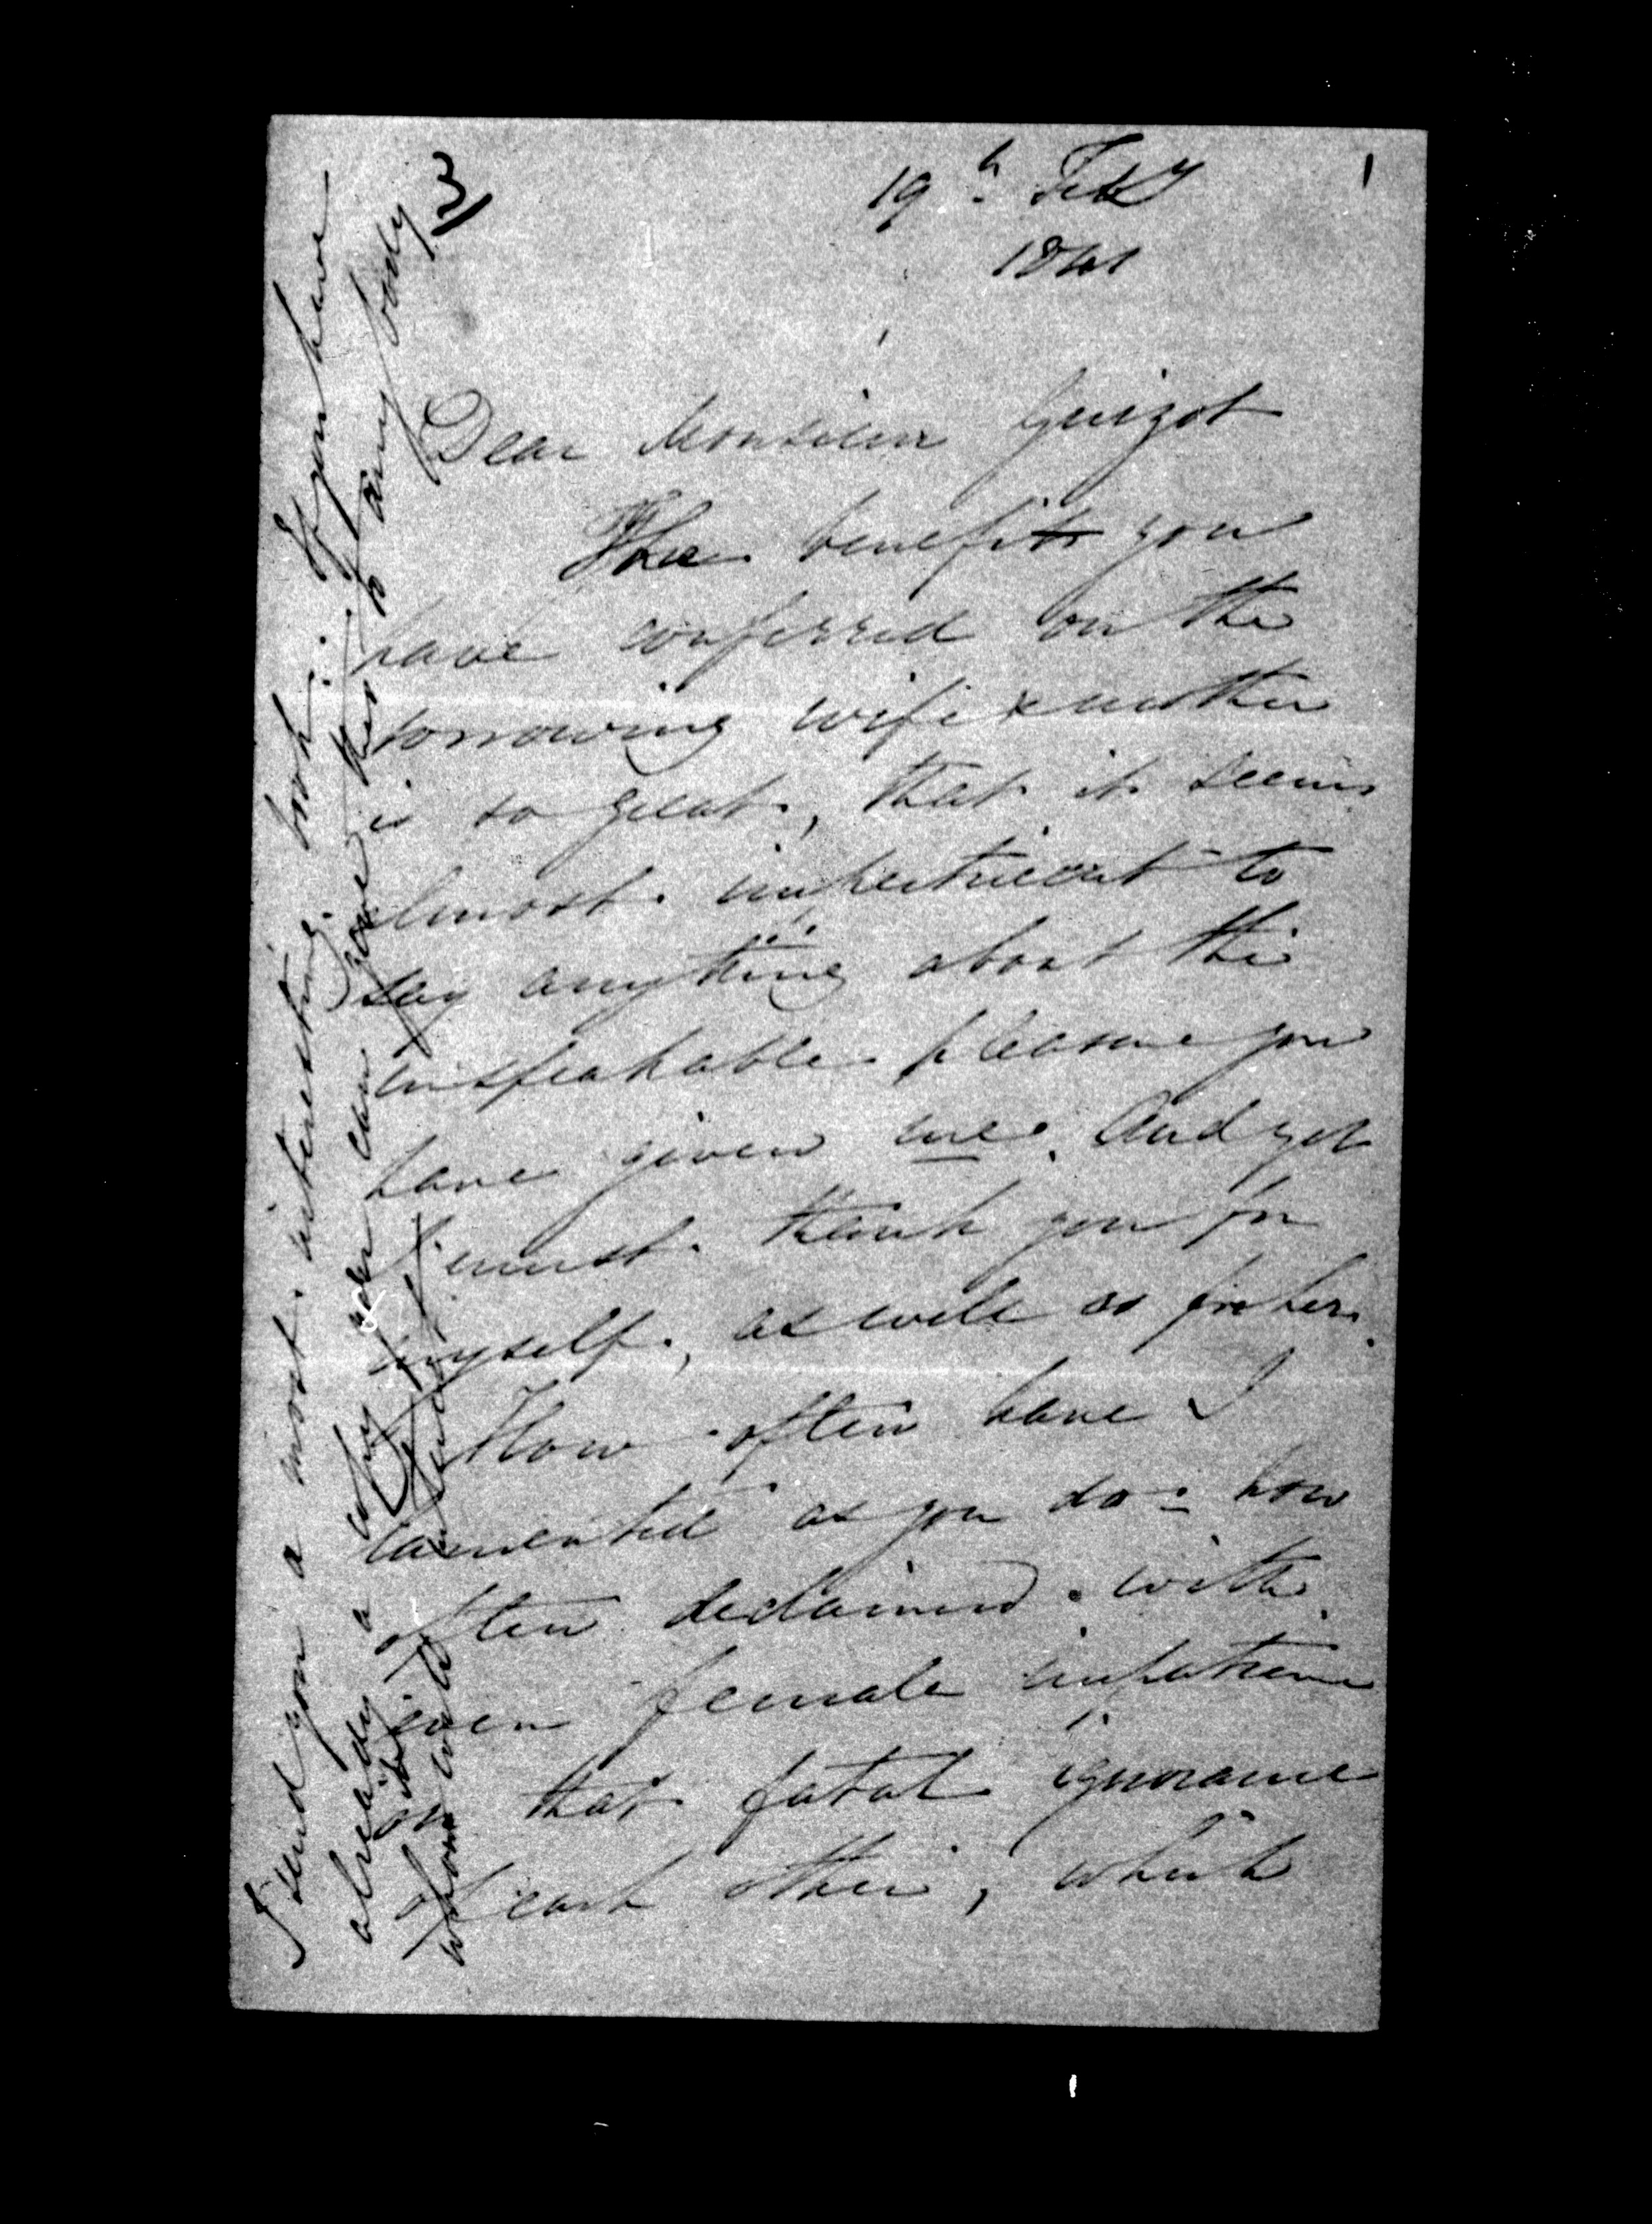 3
1
19th Feby
1841
Dear Monsieur Guizot
The benefit you
have conferred on the
sorrowing wife & mother
is so great, that it seems
almost impertinent to
say anything about the
unspeakable pleasure you
have given me. And yet
I must thank you for
myself, as well as for her.
How often have I
lamented as you do - how
often declaimed with
even female impatience
on that fatal ignorance
of each other, which
I send you a most interesting book. If you have
already a copy you can give this to any body
whom